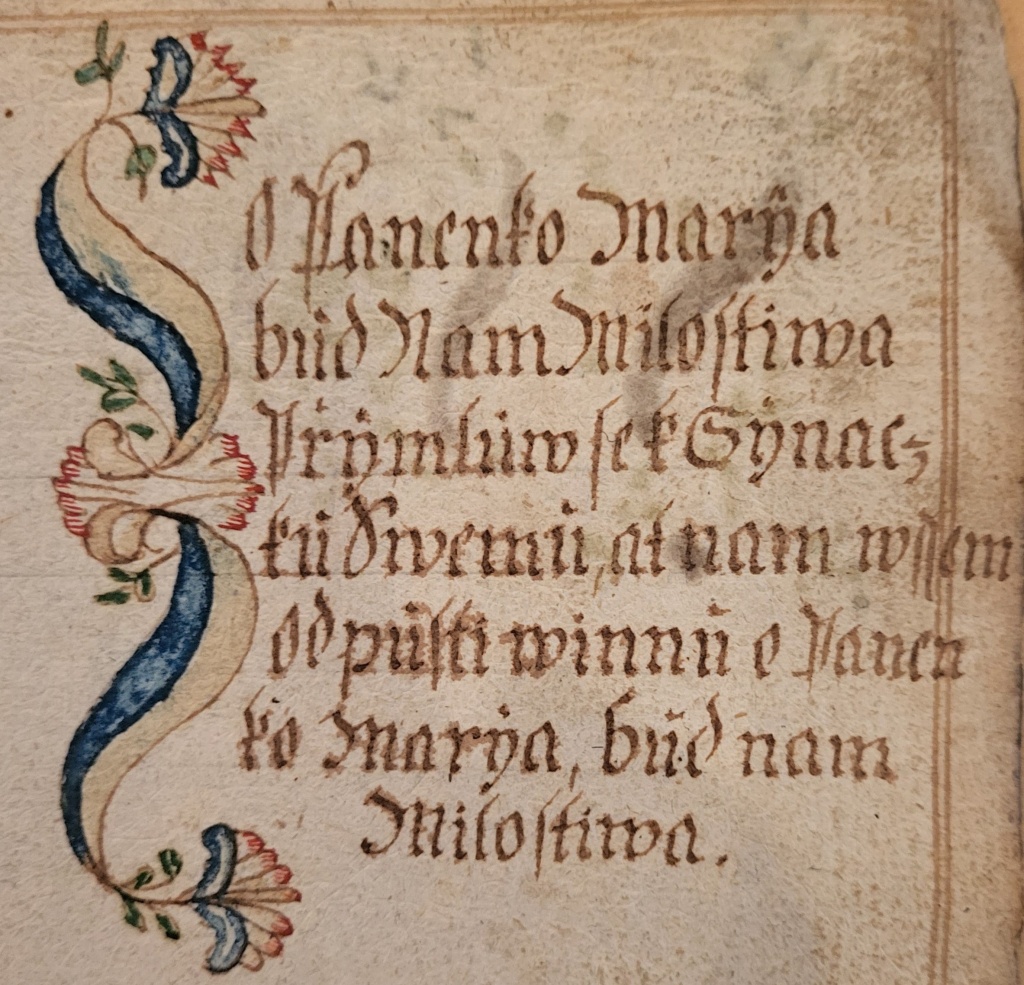 O Panenko Marÿa
bůd Nam Milostiwa
Přÿmlůw se k Sÿnac-
ků Swemů, at nam wssem
odpůsti winnů o Panen
ko Marÿa, bůd nam
Milostiwa.